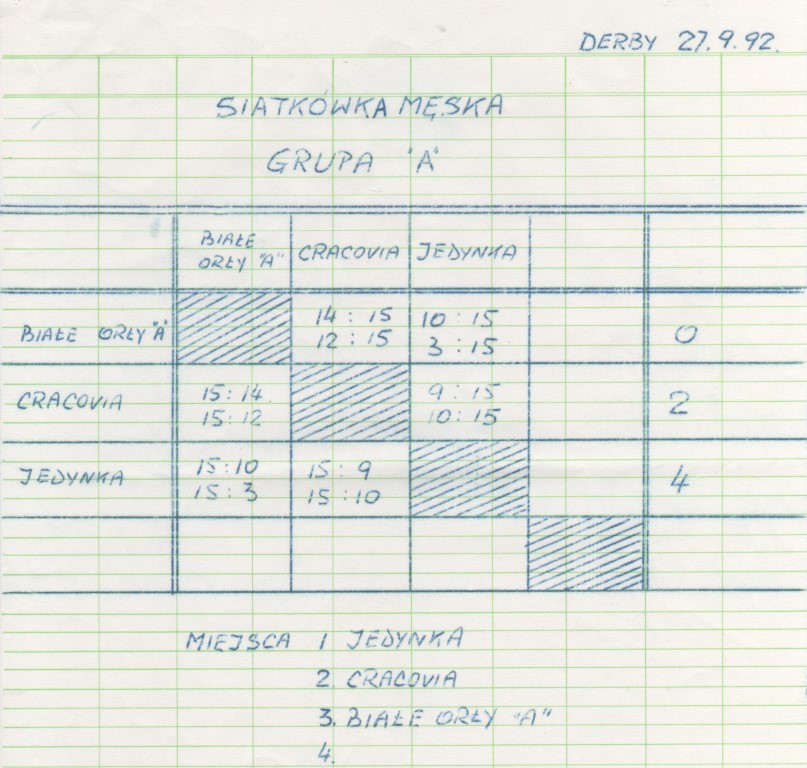 DERBY 27.9.92.
SIATKÓWKA MĘSKA
GRUPA "A"
BIAŁE ORŁY "A" CRACOVIA JEDYNKA
BIAŁE ORŁY "A" 14 : 15 10 : 15 0
12 : 15 3 : 15
CRACOVIA 15 : 14 9 : 15 2
15 : 12 10 : 15
JEDYNKA 15 : 10 15 : 9 4
15 : 3 15 : 10
MIEJSCA 1 JEDYNKA
2. CRACOVIA
3. BIAŁE ORŁY "A"
4.